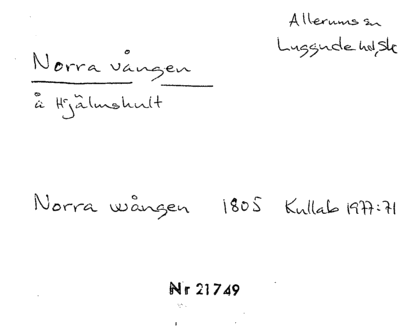 Allerums sn
Luggude hd, Sk
Norra vången
å Hjälmshult
Norra wången 1805 Kullab 1977:71
Nr 21749